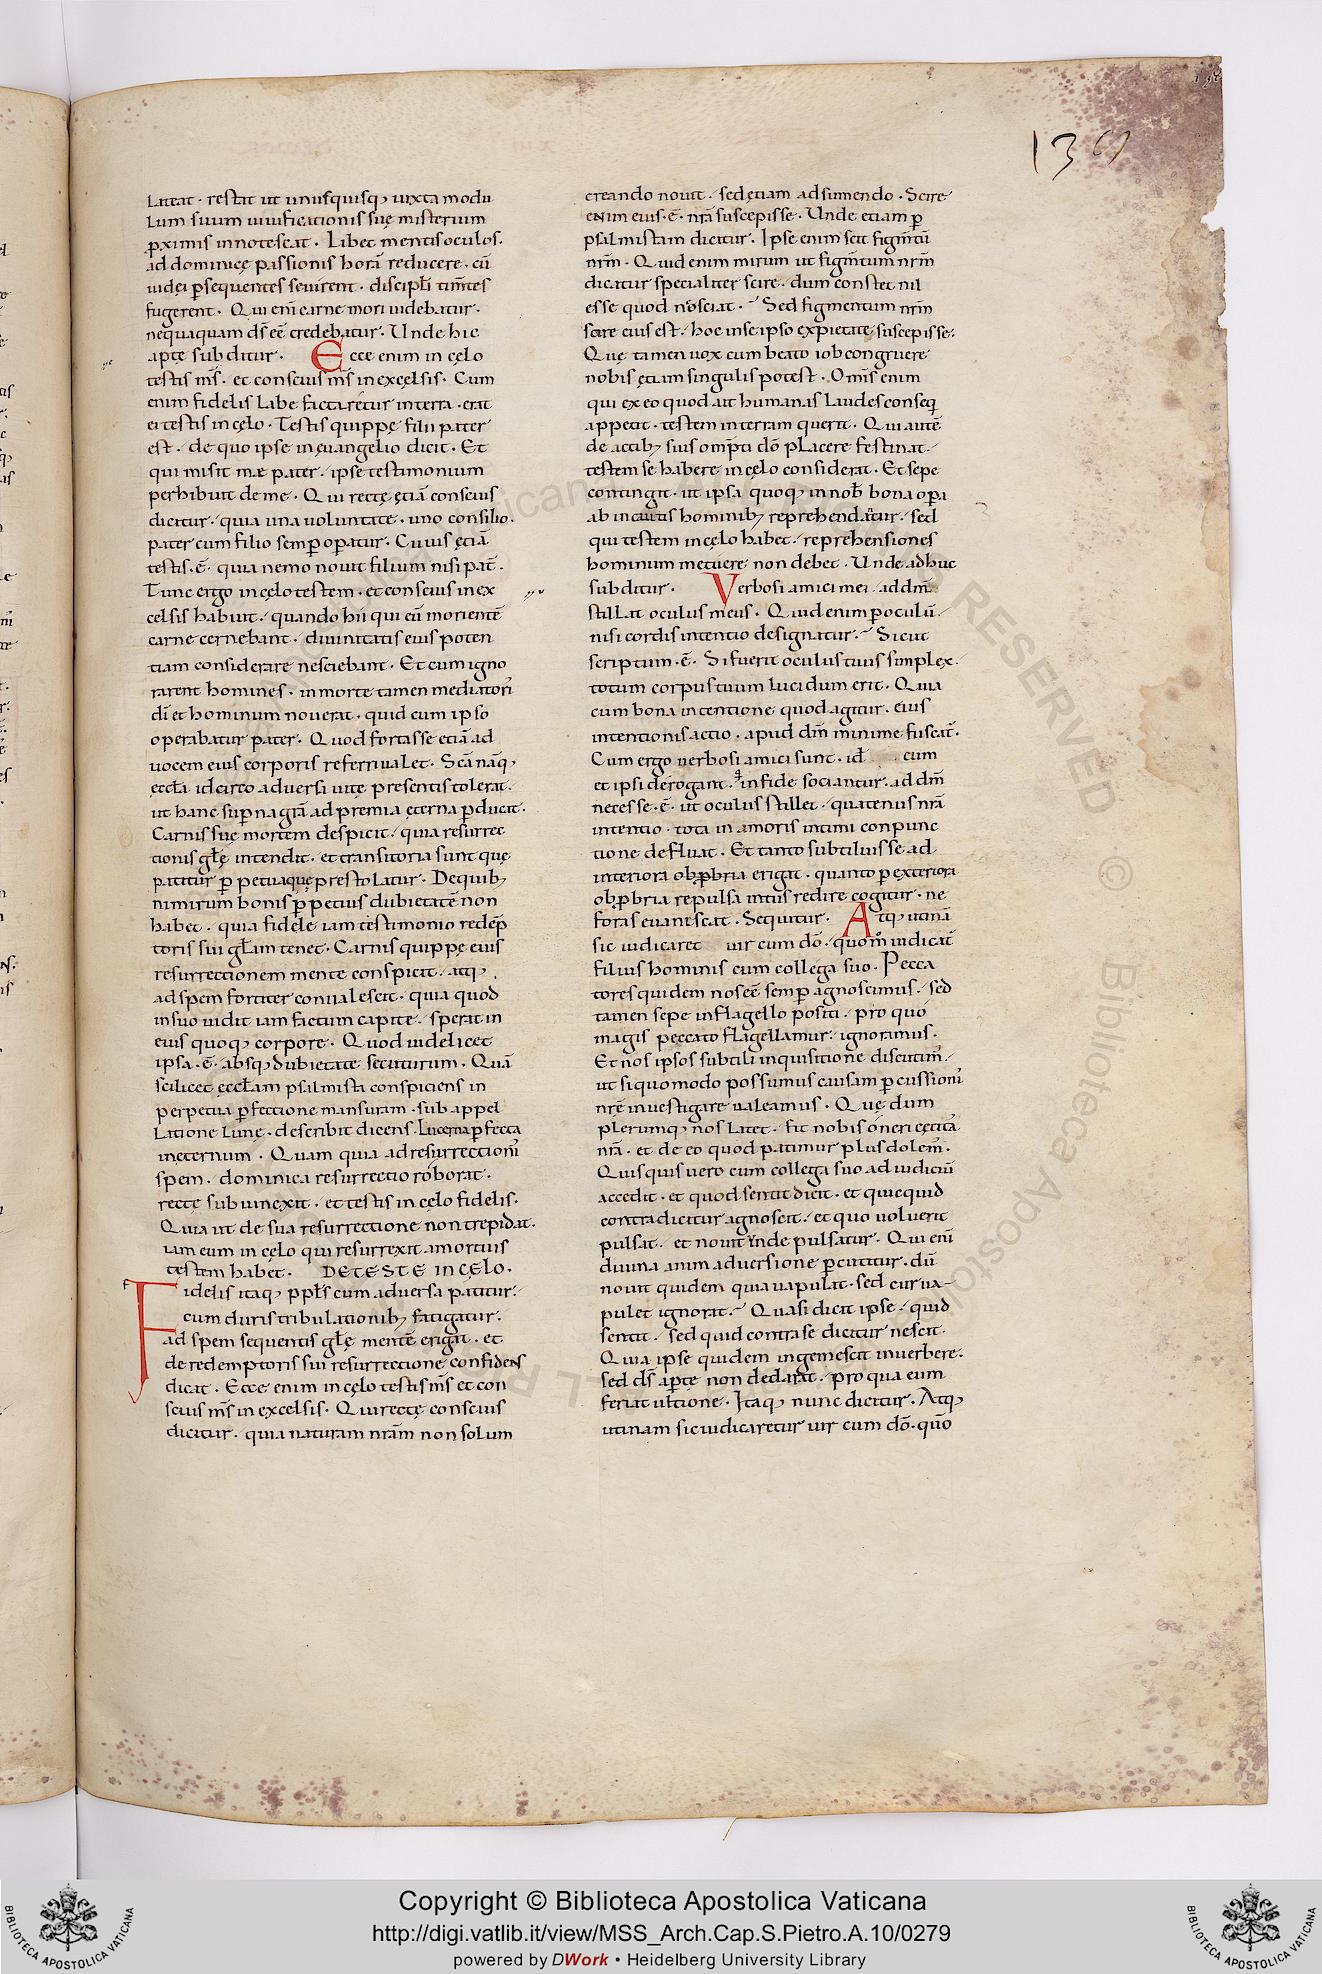 139
Lateat · restat ut unusquisq; iuxta modu
lum suum uiuificationis suę misterium
ꝓximis innotescat · Libet mentis oculos ·
ad dominicę passionis horā reducere · cū
iudęi ꝑsequentes seuirent · discipłi tim̄tes
fugerent · Qui eni carne mori uidebatur ·
nequaquam dš eē credebatur · Unde hic
apte subditur · Ecce enim in cęlo
testis mš · et conscius mš in excęlsis · Cum
enim fidelis labefactaretur in terra · erat
ei testis in cęlo · Testis quippe filii pater
est · de quo ipse in ęuangelio dicit · Et
qui misit me pater · ipse testimonium
perhibuit de me · Qui recte ętiā conscius
dicitur · quia una uoluntate · uno consilio ·
pater cum filio semꝑ oꝑatur · Cuius ętiā
testis · ē · quia nemo nouit filium nisi pat̄ ·
Tunc ergo in cęlo testem · et conscius in ex
celsis habuit · quando hii qui eū morientē
carne cernebant · diuinitatis eius poten
tiam considerare nesciebant · Et cum igno
rarent homines · in morte tamen mediatori
di et hominum nouerat · quid cum ipso
operabatur pater · Quod fortasse etiā ad
uocem eius corporis referri ualet · Scā nāq;
ęccła idcirco aduersa uitę presentis tolerat ·
ut hanc suꝑna gr̄a ad premia ęterna ꝑducat ·
Carnis suę mortem despicit · quia resurrec
tionis głę intendit · et transitoria sunt quę
patitur ꝑpetua quę prestolatur · De quib;
nimirum bonis ꝑpetuis dubietatē non
habet · quia fidele iam testimonio redēp
toris sui głam tenet · Carnis quippe eius
resurrectionem mente conspicit · atq;
ad spem fortiter conualescit · quia quod
in suo uidit iam factum capite · sperat in
eius quoq; corpore · Quod uidelicet
ipsa · ē · absq; dubietate secuturum · Quā
scilicet ęccłam psalmista conspiciens in
perpetua ꝑfectione mansuram · sub appel
latione lunę · describit dicens · Luna ꝑfecta
in ęternum · Quam quia ad resurrectionis
spem · dominica resurrectio roborat ·
recte subiunexit · et testis in cęlo fidelis ·
Quia ut de sua resurrectione non trepidat ·
iam eum in cęlo qui resurrexit a mortuis
testem habet · DE TESTE IN CĘLO ·
Fidelis itaq; ppłs cum aduersa patitur ·
cum duris tribulationib; fatigatur ·
ad spem sequentis głę mentē erigat · et
de redemptoris sui resurrectione confidens
dicat · Ecce enim in cęlo testis mš et con
scius mš in excelsis · Qui recte conscius
dicitur · quia naturam nr̄am non solum
creando nouit · sed ętiam adsumendo · Scire
enim eius · ē · nr̄a suscepisse · Unde etiam ꝑ
psalmistam dicitur · Ipse enim scit figm̄tū
nr̄m · Quid enim mirum ut figm̄tum nr̄m
dicatur specialiter scire · dum constet nil
esse quod nesciat · Sed figmentum nr̄m
scire eius est · hoc in se ipso ex pietate suscepisse ·
Que tamen uox cum beato iob congruere
nobis ętiam singulis potest · Omš enim
qui ex eo quod ait humanas laudes conseq
appetit · testem in terram querit · Qui autē
de actib; suis omp̄ti dō placere festinat ·
testem se habere in cęlo considerat · Et sepe
contingit · ut ipsa quoq; in nob bona oꝑa
ab incautis hominib; reprehendatur · sed
qui testem in cęlo habet · reprehensiones
hominum metuere non debet · Unde adhuc
subditur · Verbosi amici mei · ad dm̄
stillat oculus meus · Quid enim ꝑ oculū ·
nisi cordis intentio designatur · Sicut
scriptum · ē · Si fuerit oculus tuus simplex ·
totum corpus tuum lucidum erit · Quia
cum bona intentione quod agitur · eius
intentionis actio · apud dm̄ minime fuscat̄ ·
Cum ergo uerbosi amici sunt · id cum
et ipsi derogant · in fide sociantur · ad dm̄
necesse · ē · ut oculus stillet · quatenus nr̄a
intentio · tota in amoris intimi conpunc
tione defluat · Et tanto subtilius se ad
interiora obꝓbria erigat · quanto ꝑ exteriora
obꝓbria repulsa intus redire cogitur · ne
foras euanescat · Sequitur · Atq; utinā
sic iudicaret uir cum dō · quom̊ iudicat̄
filius hominis cum collega suo · Pecca
tores quidem nos eē semꝑ agnoscimus · sed
tamen sepe in flagello positi · pro quo
magis peccato flagellamur · ignoramus ·
Et nos ipsos subtili inquisitione discutim̄ ·
ut si quo modo possumus causam ꝑcussionis
nr̄e inuestigare ualeamus · Quę dum
plerumq; nos latet · fit nobis oneri cęcita
nr̄a · et de eo quod patimur plus dolem̄ ·
Quisquis uero cum collega suo ad iudiciū
accedit · et quod sentit dicit · et quicquid
contra dicitur agnoscit · et quo uoluerit
pulsat · et nouit unde pulsatur · Qui eni
diuina animaduersione ꝑcutitur · dū
nouit quidem quia uapulat · sed cur ua-
pulet ignorat · Quasi dicit ipse · quid
sentit · sed quid contra se dicitur nescit ·
Quia ipse quidem ingemescit in uerbere ·
sed dš aꝑte non declarat · pro qua eum
feriat ultione · Itaq; nunc dicitur · Atq;
utinam sic iudicaretur uir cum dō · quō
Copyright © Biblioteca Apostolica Vaticana
http://digi.vatlib.it/view/MSS_Arch.Cap.S.Pietro.A.10/0279
powered by DWork • Heidelberg University Library
BIBLIOTECA APOSTOLICA VATICANA
BIBLIOTECA APOSTOLICA VATICANA